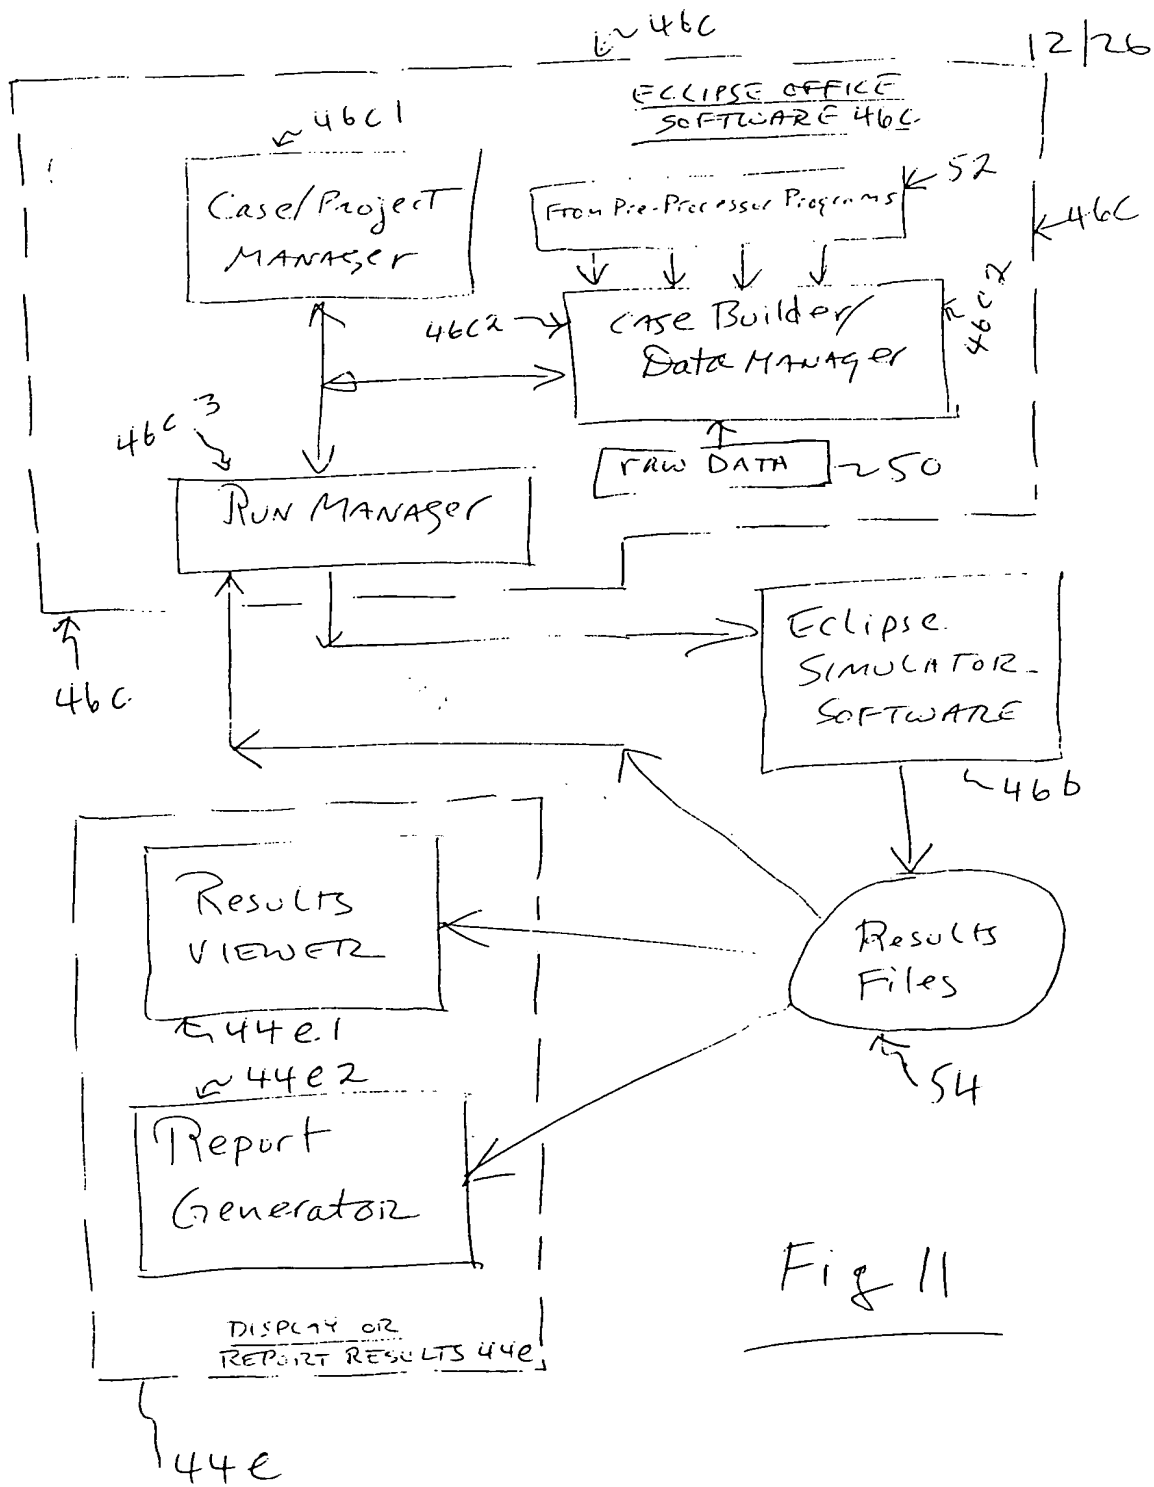 46C
12/26
ECLIPSE OFFICE
SOFTWARE 46C.
46C1
Case/Project
MANAGER
52
From Pre-Processor Programs
46C
46C2
46C2
CASE Builder/
Data MANAGER
46C3
raw DATA
50
RUN MANAGER
46C
Eclipse
SIMULATOR
SOFTWARE
46b
Results
VIEWER
Results
Files
44e.1
44e2
54
Report
Generator
Fig 11
DISPLAY OR
REPORT RESULTS 44e
44e